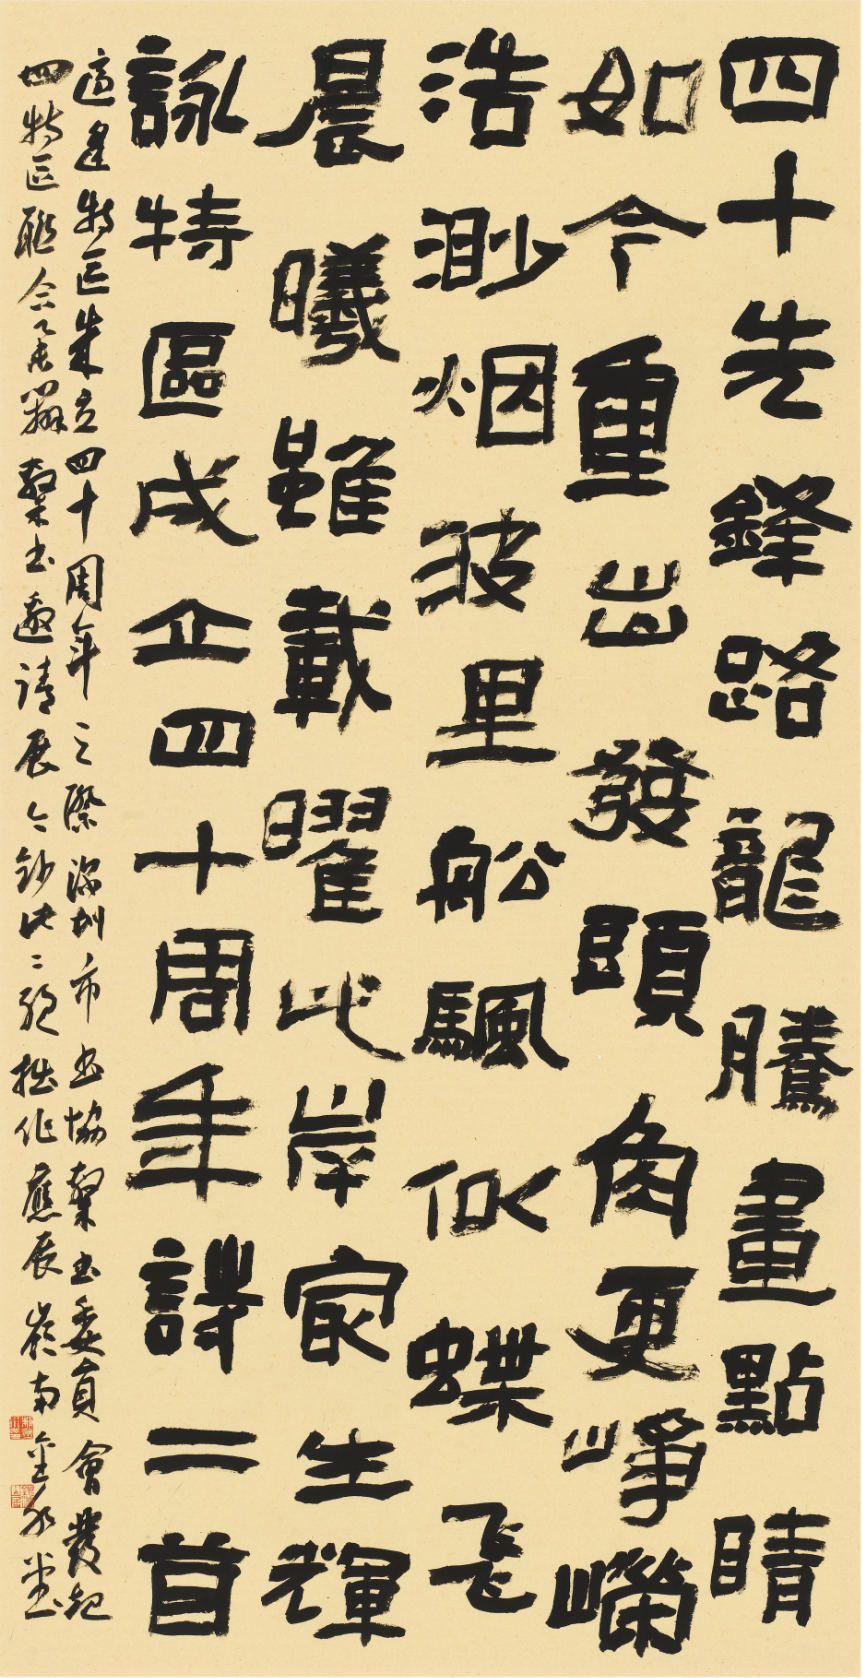 四十先鋒路龍騰畫點睛
如今重出發頭角更崢嶸
浩渺烟波里船颿似蝶飛
晨曦雖載曜此岸家生輝
詠特區成立四十周年詩二首
適逢特区成立四十周年之際深圳市书協隸书委員會發起
四特区聯合隸书邀請展鈔此二絕拙作應展嶺南书